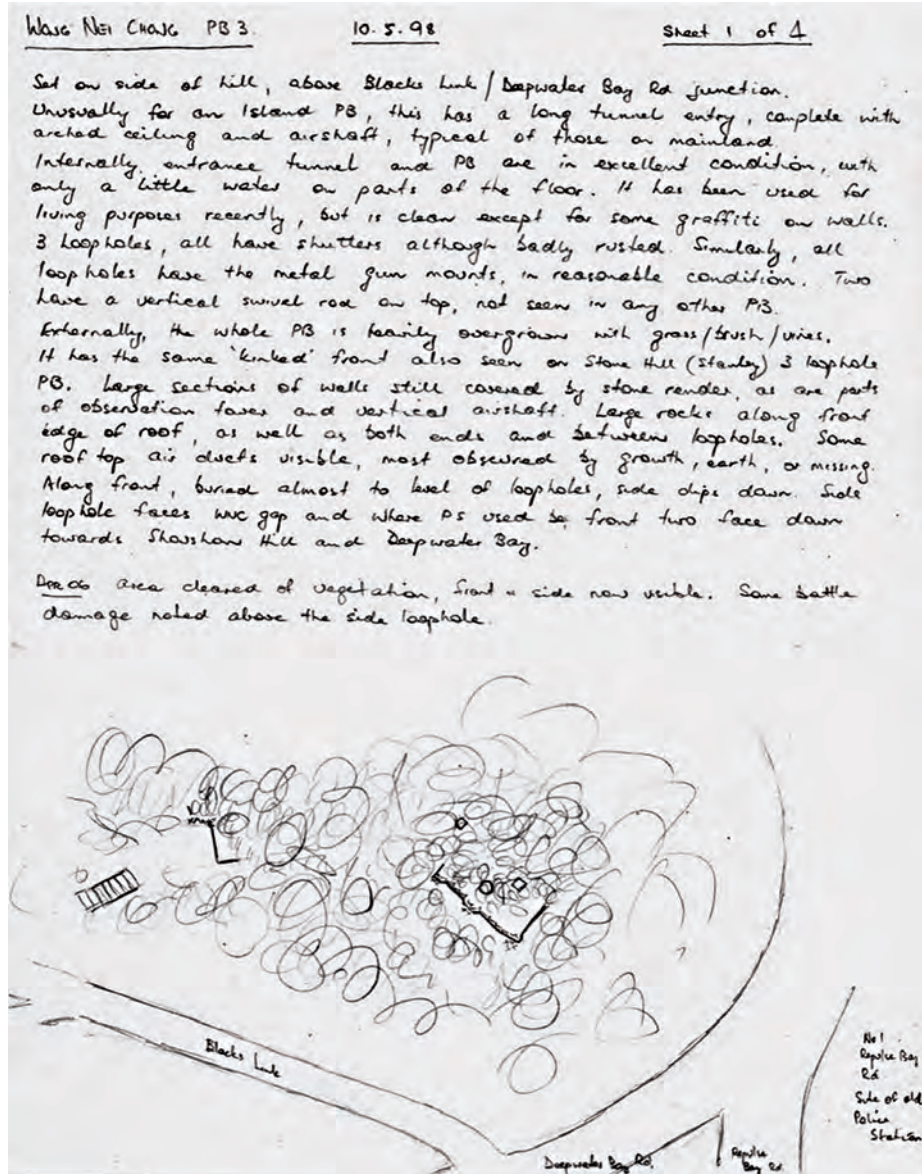 WONG NEI CHONG PB 3. 10.5.98 Sheet 1 of 4
Set on side of hill, above Blacks Link / Deepwater Bay Rd junction.
Unusually for an Island PB, this has a long tunnel entry, complete with
arched ceiling and airshaft, typical of those on mainland.
Internally, entrance tunnel and PB are in excellent condition, with
only a little water on parts of the floor. It has been used for
living purposes recently, but is clean except for some graffiti on walls.
3 Loopholes, all have shutters although badly rusted. Similarly, all
loopholes have the metal gun mounts, in reasonable condition. Two
have a vertical swivel rod on top, not seen in any other PB.
Externally, the whole PB is heavily overgrown with grass/brush/vines.
It has the same 'kinked' front also seen on Stone Hill (Stanley) 3 loophole
PB. Large sections of walls still covered by stone render, as are parts
of observation tower and vertical airshaft. Large rocks along front
edge of roof, as well as both ends and between loopholes. Some
roof top air ducts visible, most obscured by growth, earth, or missing.
Along front, buried almost to level of loopholes, side dips down. Side
loophole faces WNC gap and where PS used be, front two face down
towards Shoushon Hill and Deepwater Bay.
area cleared of vegetation, front + side now visible. Some battle
damage noted above the side loophole.
Blacks Link
Deepwater Bay Rd.
Repulse
Bay Rd
No 1
Repulse Bay
Rd
Side of old
Police
Station